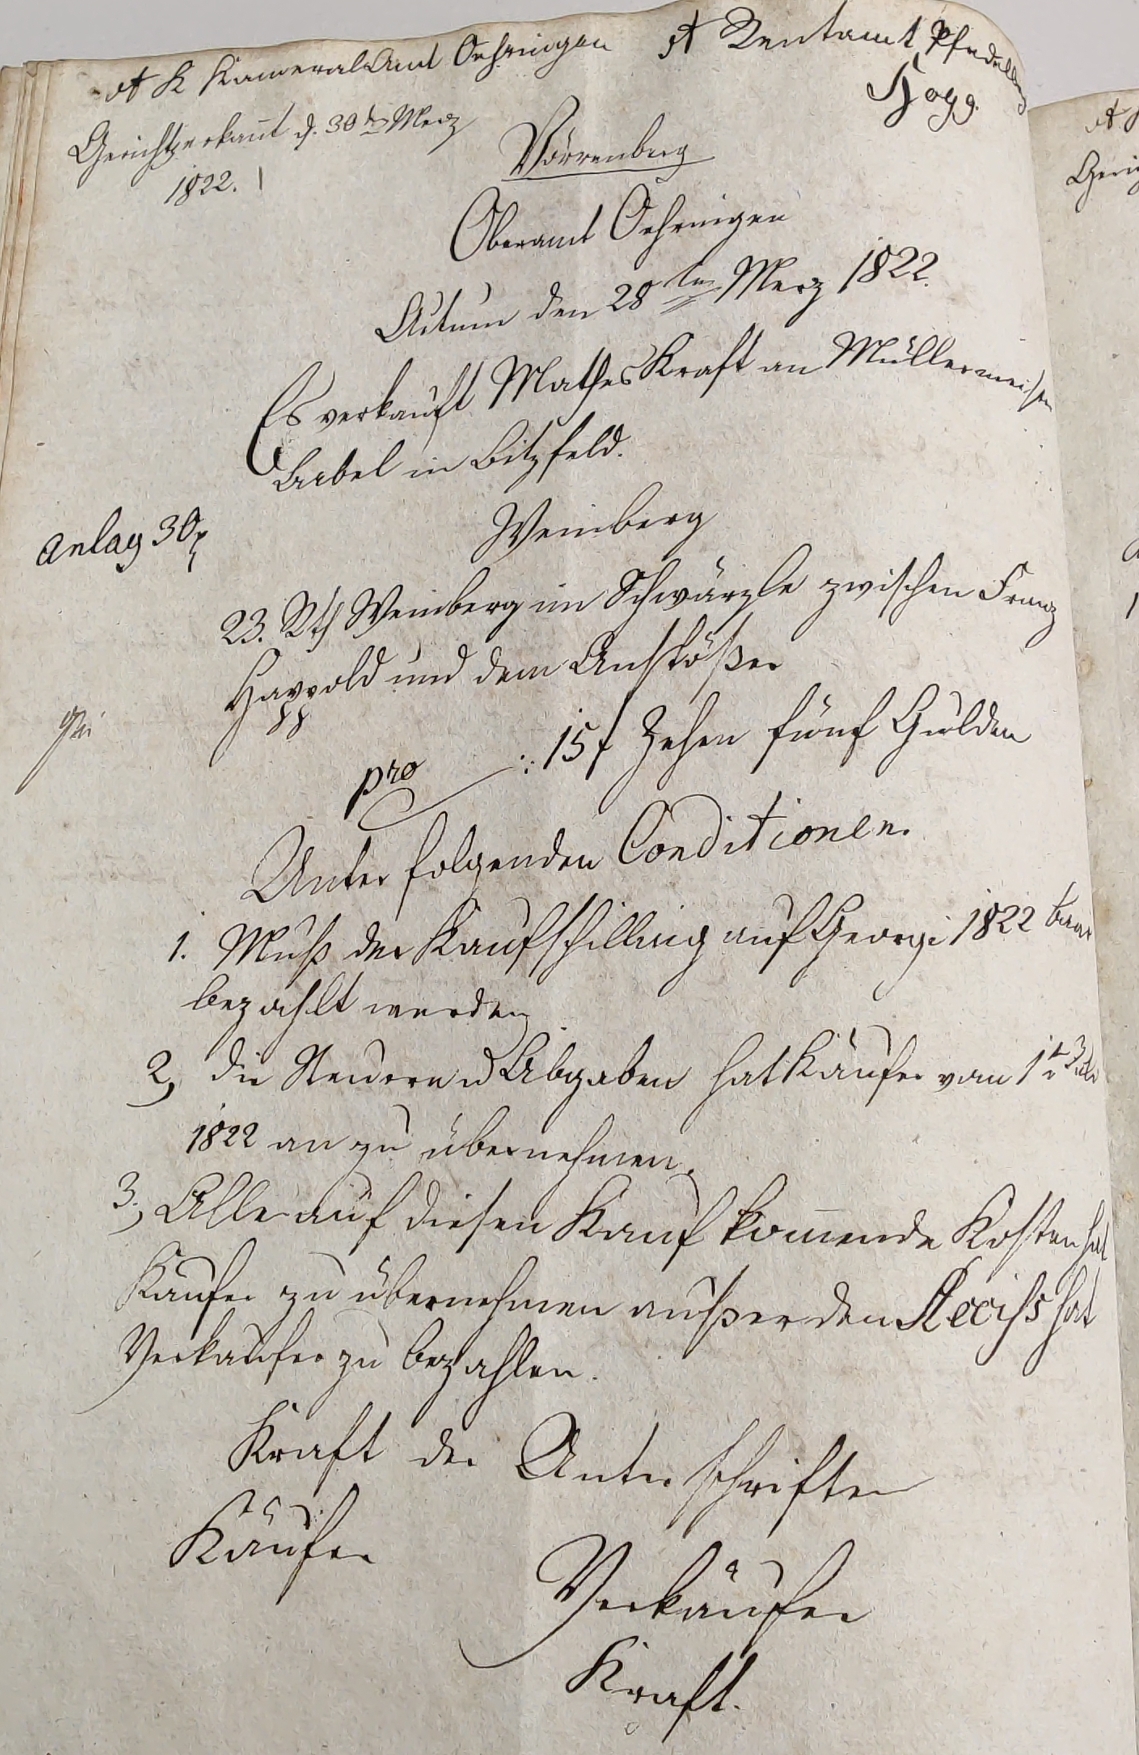 K KameralAmt Oehringen
Rentamt Pfedelb
Hogg.
Gerichtl erkant d. 30ten Merz
1822.
Vörrenberg
Oberamt Oehringen
Actum den 28ten Merz 1822.
Es verkauft Mathes Kraft an Müllermeister
in Bitzfeld.
Weinberg
anlag 30x
23. Rth Weinberg im Schwärzle zwischen Franz
Happold und dem Anstößer
pro 15 f Zehen fünf Gulden
Unter folgenden Conditionen.
1. Muß der Kaufschilling auf Georgi 1822 baar
bezahlt werden
2, die Steuern u Abgaben hat Käufer vom 1t Juli
1822 an zu übernehmen.
3, Alle auf diesen Kauf komende Kosten hat
Käufer zu übernehmen außer den Acciss hat
Verkäufer zu bezahlen.
Kraft der Unterschriften
Käufer
Verkäufer
Kraft.